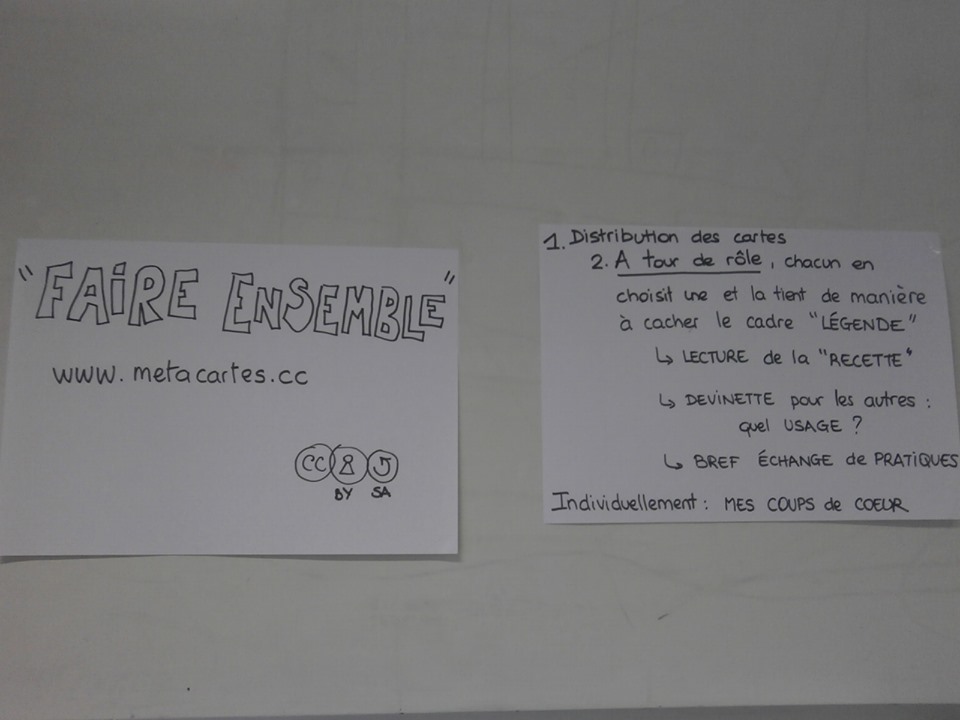 "FAIRE ENSEMBLE"
www.metacartes.cc
CC
BY SA
1. Distribution des cartes
2. A tour de rôle, chacun en
choisit une et la tient de manière
à cacher le cadre "LÉGENDE"
↳ LECTURE de la "RECETTE"
↳ DEVINETTE pour les autres :
quel USAGE ?
↳ BREF ÉCHANGE de PRATIQUES
Individuellement : MES COUPS de COEUR